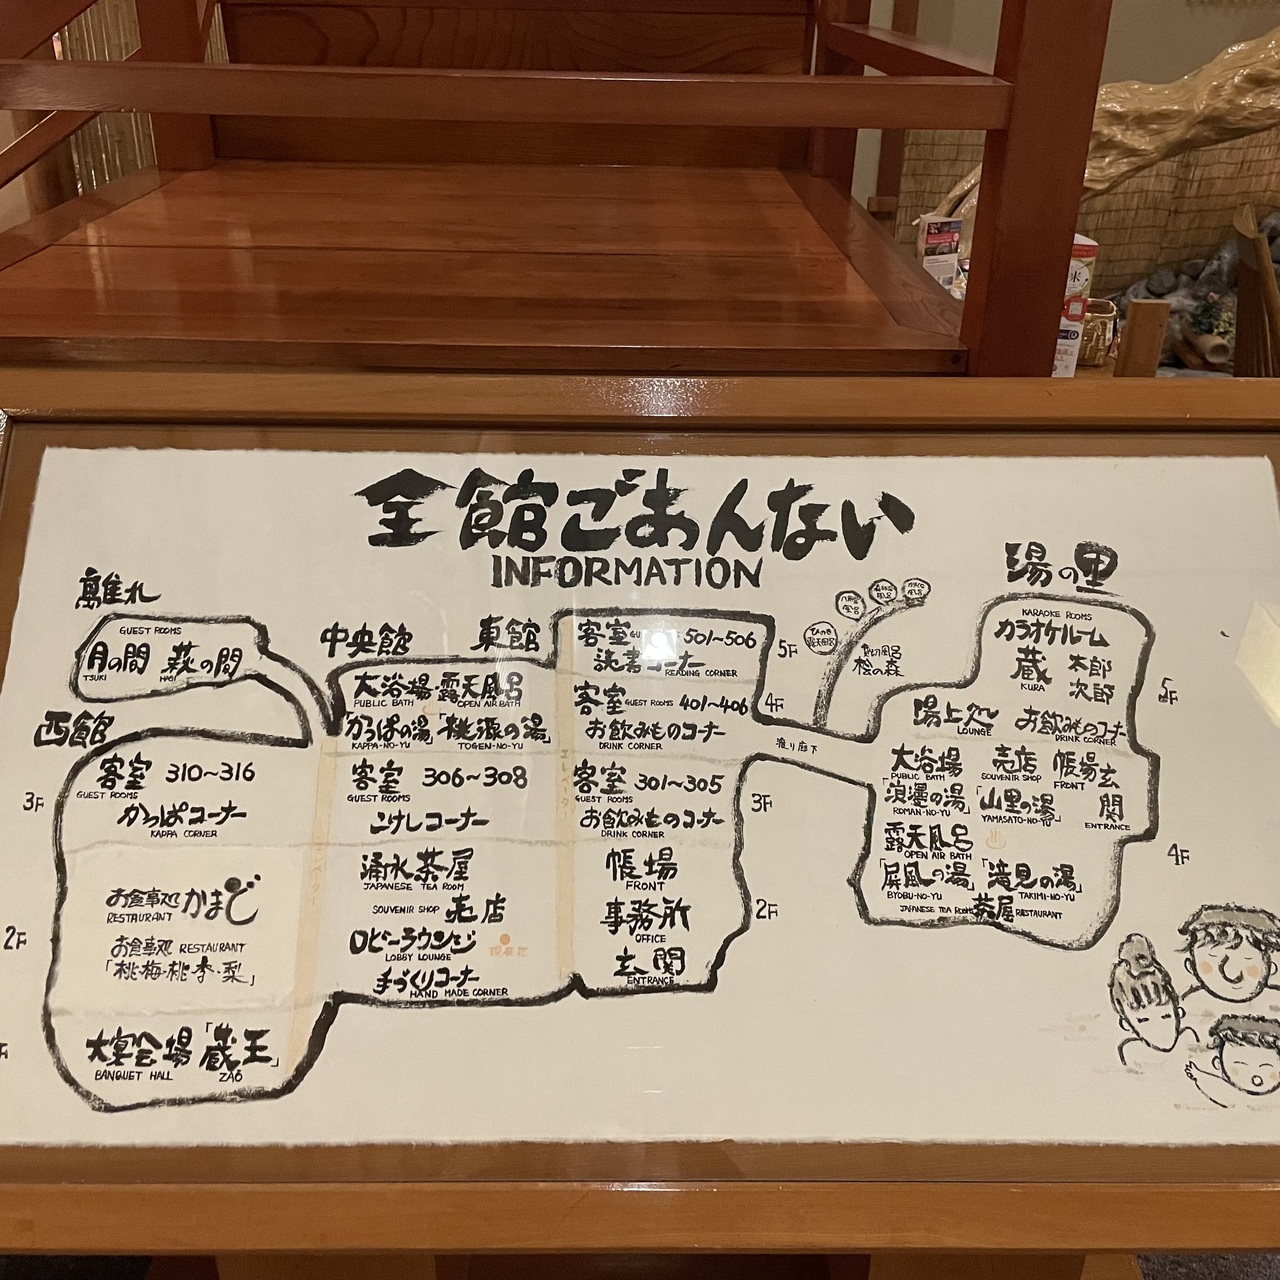 全館ごあんない
INFORMATION
離れ
GUEST ROOMS
月の間 萩の間
TSUKI HAGI
西館
3F
客室 310~316
GUEST ROOMS
かっぱコーナー
KAPPA CORNER
2F
お食事処 かまど
RESTAURANT
お食事処 RESTAURANT
「桃・梅・桃・李・梨」
大宴会場「蔵王」
BANQUET HALL ZAŌ
エレベーター
中央館
大浴場 露天風呂
PUBLIC BATH OPEN AIR BATH
「かっぱの湯」「桃源の湯」
KAPPA-NO-YU TOGEN-NO-YU
客室 306~308
GUEST ROOMS
こけしコーナー
湧水茶屋
JAPANESE TEA ROOM
SOUVENIR SHOP 売店
ロビーラウンジ
LOBBY LOUNGE
現在地
手づくりコーナー
HAND MADE CORNER
エレベーター
東館
5F
客室 GUEST ROOMS 501~506
読書コーナー
READING CORNER
4F
客室 GUEST ROOMS 401~406
お飲みものコーナー
DRINK CORNER
3F
客室 301~305
GUEST ROOMS
お飲みものコーナー
DRINK CORNER
2F
帳場
FRONT
事務所
OFFICE
玄関
ENTRANCE
渡り廊下
貸切風呂
桧の森
ひのき
露天風呂
八角
風呂
風呂
風呂
湯の里
5F
KARAOKE ROOMS
カラオケルーム
蔵 太郎
KURA 次郎
湯上処 お飲みものコーナー
LOUNGE DRINK CORNER
4F
大浴場 売店 帳場 玄関
PUBLIC BATH SOUVENIR SHOP FRONT ENTRANCE
「浪漫の湯」「山里の湯」
ROMAN-NO-YU YAMASATO-NO-YU
露天風呂
OPEN AIR BATH
「屏風の湯」「滝見の湯」
BYOBU-NO-YU TAKIMI-NO-YU
JAPANESE TEA ROOM 茶屋 RESTAURANT